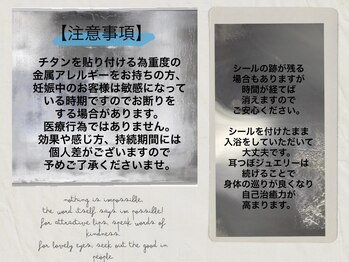 【注意事項】
チタンを貼り付ける為重度の
金属アレルギーをお持ちの方、
妊娠中のお客様は敏感になって
いる時期ですのでお断りを
する場合があります。
医療行為ではありません。
効果や感じ方、持続期間には
個人差がございますので
予めご了承くださいませ。
シールの跡が残る
場合もありますが
時間が経てば
消えますので
ご安心ください。
シールを付けたまま
入浴をしていただいて
大丈夫です。
耳つぼジュエリーは
続けることで
身体の巡りが良くなり
自己治癒力が
高まります。
nothing is impossible.
the word itself says i'm possible!
for attractive lips, speak words of
kindness.
for lovely eyes, seek out the good in
people